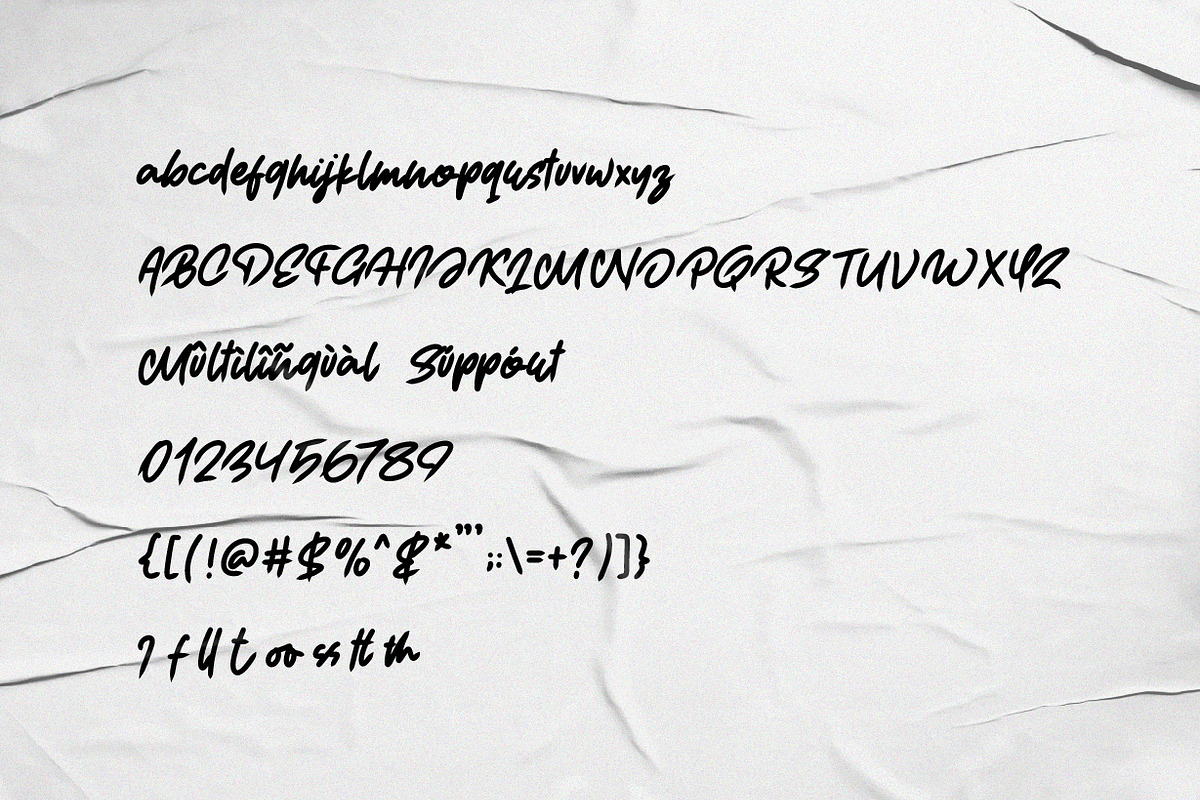 abcdefghijklmnopqrstuvwxyz
ABCDEFGHIJKLMNOPQRSTUVWXYZ
Mûltilîñgùàl Sũppórt
0123456789
{[(!@#$%^&*"';:\=+?)]}
I f ll t oo ss tt th